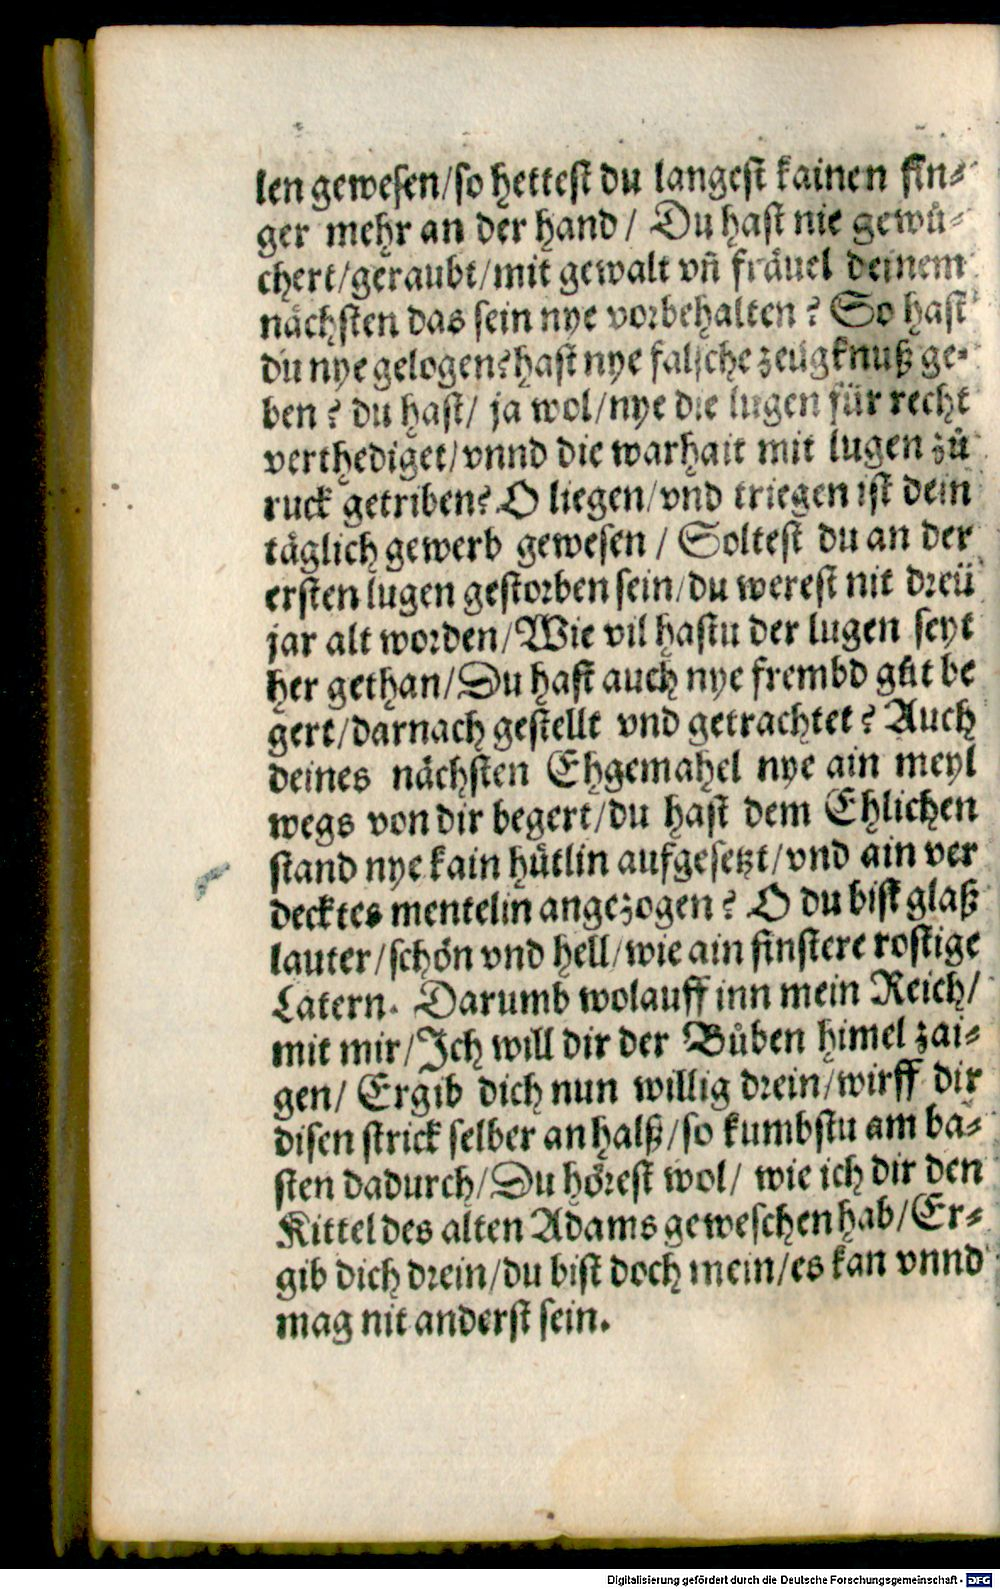 len gewesen/so hettest du langest kainen fin⸗
ger mehr an der hand / Du hast nie gewů⸗
chert/geraubt/mit gewalt vñ fräuel deinem
nächsten das sein nye vorbehalten? So hast
du nye gelogen? hast nye falsche zeügknuß ge⸗
ben? du hast/ ja wol/nye die lugen für recht
verthediget/vnnd die warhait mit lugen zů
ruck getriben? O liegen/vnd triegen ist dein
täglich gewerb gewesen / Soltest du an der
ersten lugen gestorben sein/du werest nit dreü
jar alt worden/Wie vil hastu der lugen seyt
her gethan/Du hast auch nye frembd gůt be
gert/darnach gestellt vnd getrachtet? Auch
deines nächsten Ehgemahel nye ain meyl
wegs von dir begert/du hast dem Ehlichen
stand nye kain hütlin aufgesetzt/vnd ain ver
decktes mentelin angezogen? O du bist glaß
lauter/schön vnd hell/wie ain finstere rostige
Latern. Darumb wolauff inn mein Reich/
mit mir/Ich will dir der Bůben himel zai⸗
gen/ Ergib dich nun willig drein/wirff dir
disen strick selber an halß/so kumbstu am ba⸗
sten dadurch/Du hörest wol/ wie ich dir den
Kittel des alten Adams geweschen hab/Er⸗
gib dich drein/du bist doch mein/es kan vnnd
mag nit anderst sein.
Digitalisierung gefördert durch die Deutsche Forschungsgemeinschaft - DFG